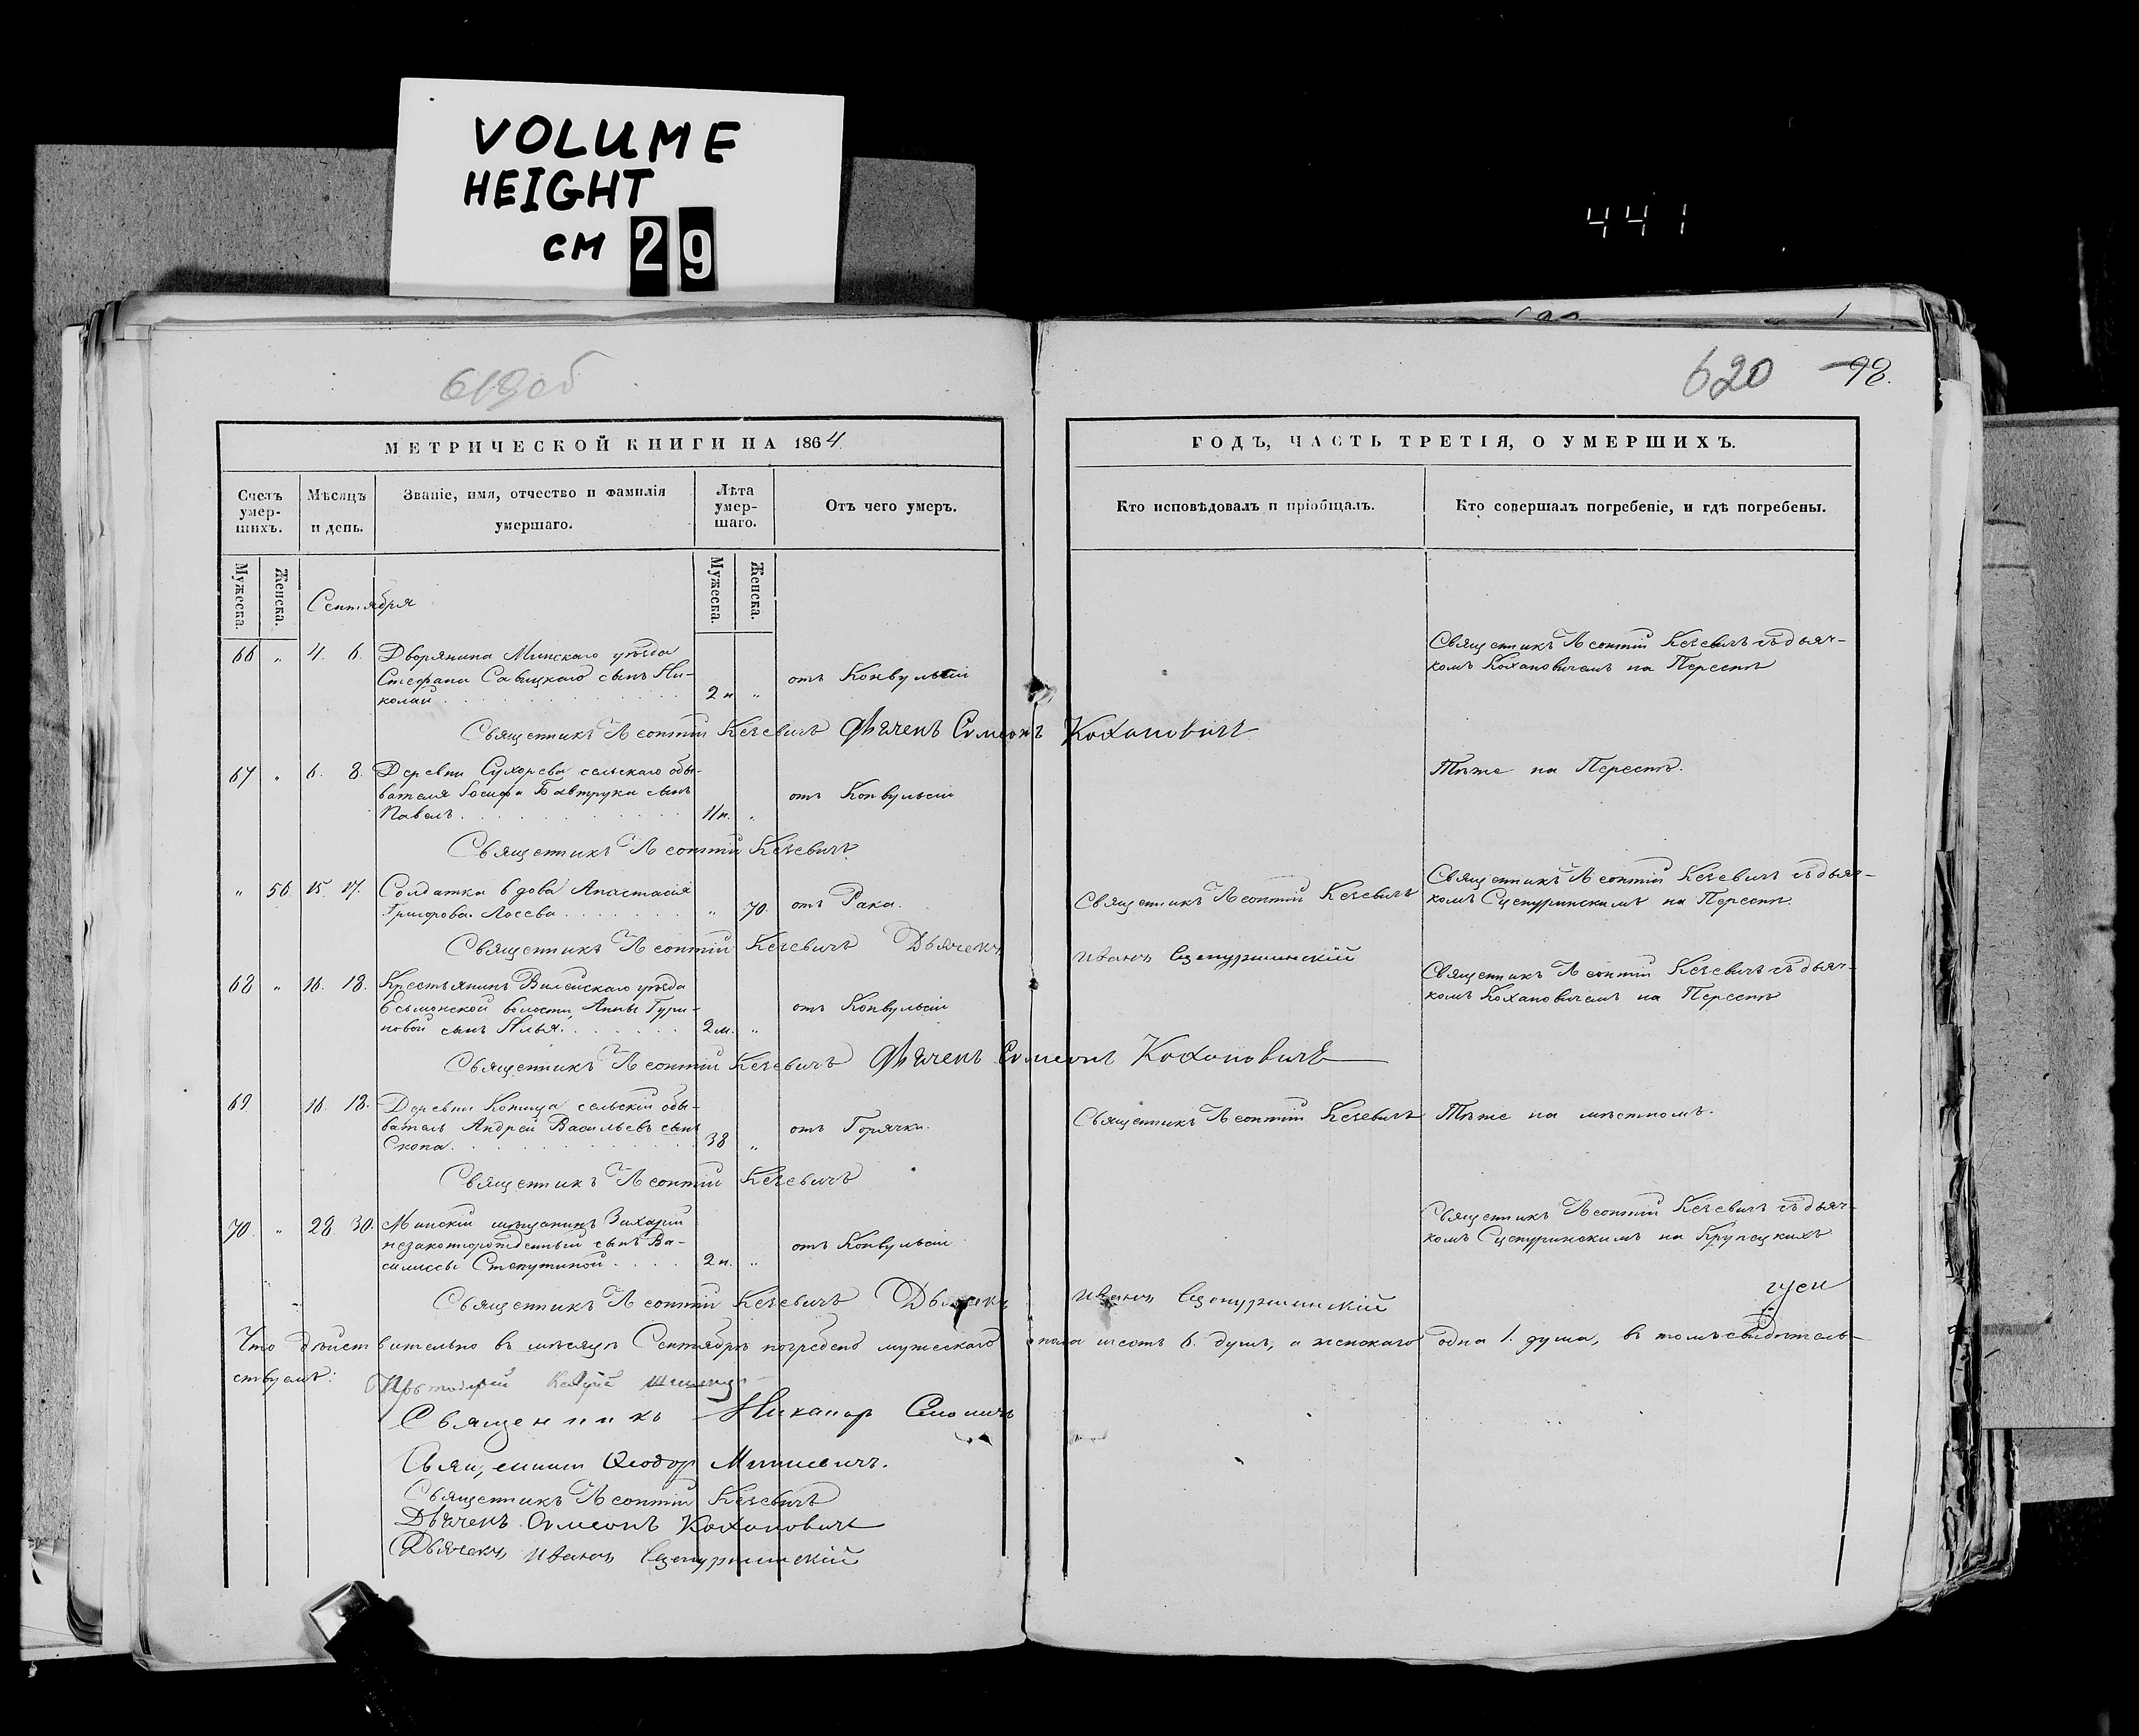 VOLUME
HEIGHT
CM 29
441
619 об
620 98.
МЕТРИЧЕСКОЙ КНИГИ НА 1864
ГОДЪ, ЧАСТЬ ТРЕТІЯ, О УМЕРШИХЪ.
Счетъ умер-шихъ.
Мѣсяцъ и день.
Званіе, имя, отчество и фамилія умершаго.
Лѣта умер-шаго.
Отъ чего умеръ.
Кто исповѣдовалъ и пріобщалъ.
Кто совершалъ погребеніе, и гдѣ погребены.
Мужеска.
Женска.
Мужеска.
Женска.
Сентября
66 „ 4. 6. Дворянина Минскаго уѣзда
Стефана Савицкаго сынъ Ни-
колай 2 н „ отъ Конвульсіи
Священникъ Леонтій Кечевичъ съ дьяч-
комъ Кохановичемъ на Переспѣ
Священникъ Леонтій Кечевичъ Дьячекъ Симеонъ Кохановичъ
67 „ 6. 8. Деревни Сухорева сельскаго обы-
вателя Іосифа Бавтрука сынъ
Павелъ 11 н. „ отъ Конвульсіи
Тѣже на Переспѣ.
Священникъ Леонтій Кечевичъ
„ 56 15. 17. Солдатка вдова Анастасія
Григорова Лосева „ 70. отъ Рака.
Священникъ Леонтій Кечевичъ
Священникъ Леонтій Кечевичъ съ дьяч-
комъ Сцепуринскимъ на Переспѣ.
Священникъ Леонтій Кечевичъ Дьячекъ Иванъ Сцепуржинскій
68 „ 16. 18. Крестьянинъ Вилейскаго уѣзда
волости, Анны Гури-
новой сынъ Илья. 2 м. „ отъ Конвульсіи
Священникъ Леонтій Кечевичъ съ дьяч-
комъ Кохановичемъ на Переспѣ
Священникъ Леонтій Кечевичъ Дьячекъ Симеонъ Кохановичъ
69 16. 18. Деревни Копища сельскій обы-
ватель Андрей Васильевъ сынъ
Скопа. 38 „ отъ Горячки.
Священникъ Леонтій Кечевичъ
Тѣже на мѣстномъ.
Священникъ Леонтій Кечевичъ
70. „ 28 30. Минскій мѣщанинъ Захарій
незаконнорожденный сынъ Ва-
силиссы 2 н. „ отъ Конвульсіи
Священникъ Леонтій Кечевичъ съ дьяч-
комъ Сцепуринскимъ на Крупецкихъ
Священникъ Леонтій Кечевичъ Дьячекъ Иванъ Сцепуржинскій
Что дѣйствительно въ мѣсяцѣ Сентябрѣ погребено мужескаго пола шесть 6. душъ, а женскаго одна 1. душа, въ томъ свидѣтель-
ствуемъ:
Священникъ Никаноръ Смоличъ
Священникъ Ѳеодоръ
Священникъ Леонтій Кечевичъ
Дьячекъ Симеонъ Кохановичъ
Дьячекъ Иванъ Сцепуржинскій